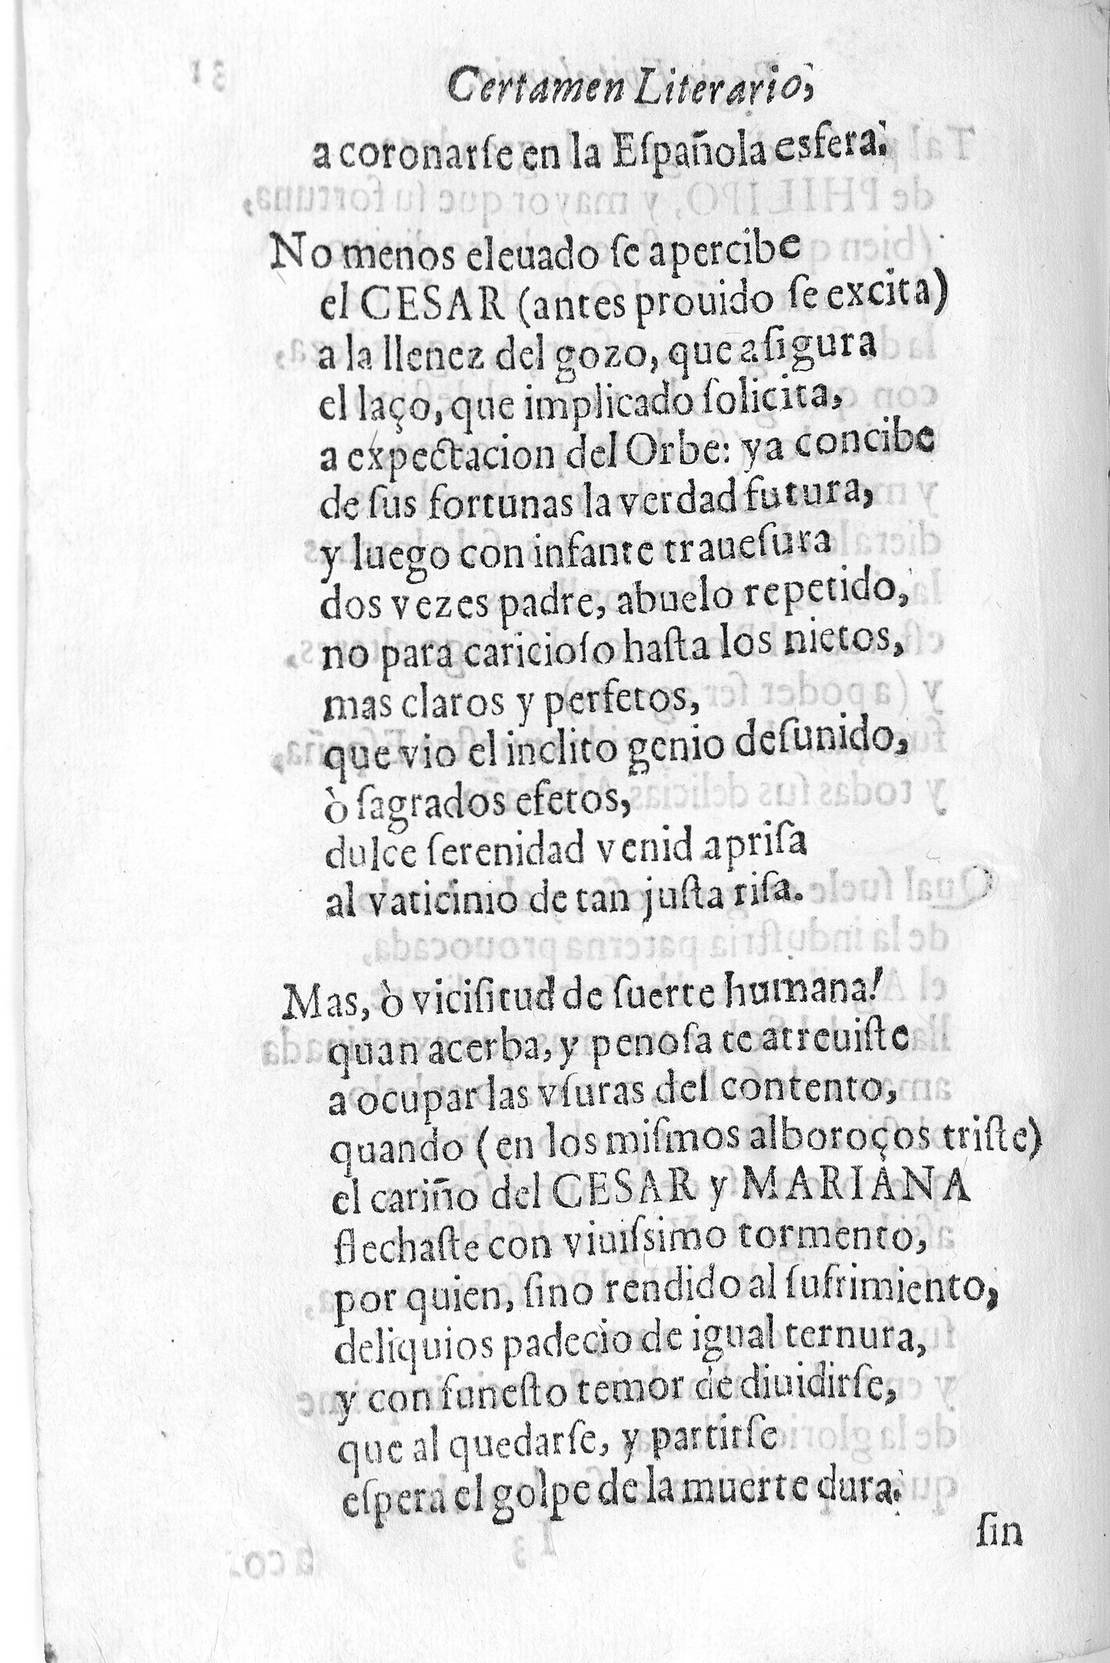 Certamen Literario,
a coronarſe en la Eſpañola esfera.
No menos eleuado ſe apercibe
el CESAR (antes prouido ſe excita)
a la llenez del gozo, que aſigura
el laço, que implicado ſolicita,
a expectacion del Orbe: ya concibe
de ſus fortunas la verdad futura,
y luego con infante traueſura
dos vezes padre, abuelo repetido,
no para caricioſo haſta los nietos,
mas claros y perfetos,
que vio el inclito genio deſunido,
ò ſagrados efetos,
dulce ſerenidad venid apriſa
al vaticinio de tan juſta riſa.
Mas, ò viciſitud de ſuerte humana!
quan acerba, y penoſa te atreuiſte
a ocupar las vſuras del contento,
quando (en los miſmos alboroços triſte)
el cariño del CESAR y MARIANA
flechaſte con viuiſsimo tormento,
por quien, ſino rendido al ſufrimiento,
deliquios padecio de igual ternura,
y con funeſto temor de diuidirſe,
que al quedarſe, y partirſe
eſpera el golpe de la muerte dura.
ſin